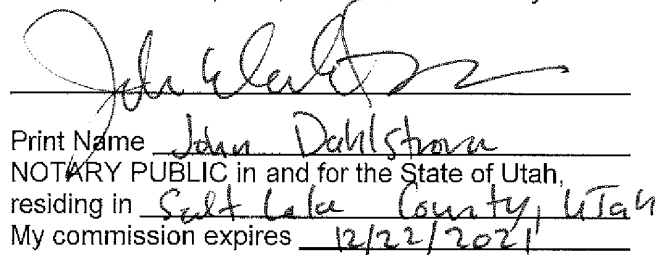 Print Name John Dahlstrom
NOTARY PUBLIC in and for the State of Utah,
residing in Salt Lake County, UTah
My commission expires 12/22/2021